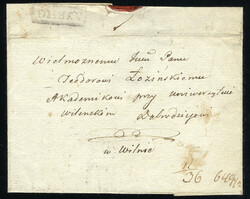 Wielmożnemu Jmć Panu
Teodorowi Łozińskiemu
Akademikowi przy uniwersytecie
wileńskim Dobrodziejowi
w Wilnie
36